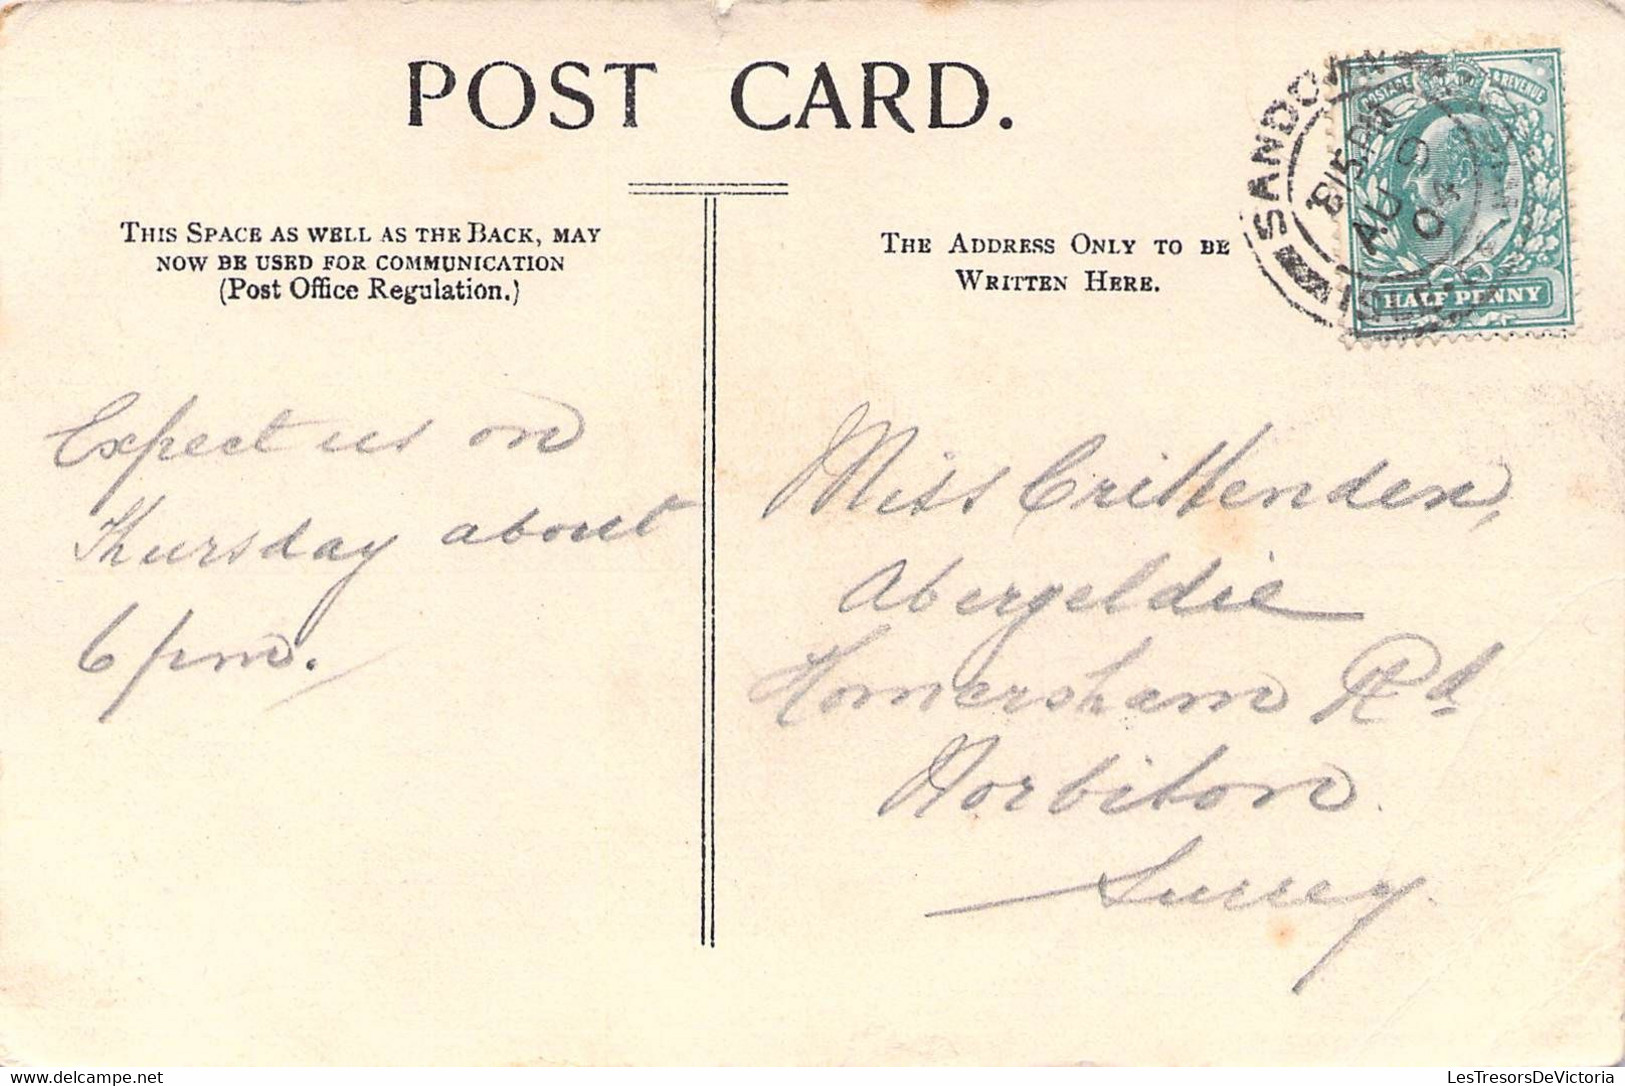 POST CARD.
THIS SPACE AS WELL AS THE BACK, MAY
NOW BE USED FOR COMMUNICATION
(Post Office Regulation.)
THE ADDRESS ONLY TO BE
WRITTEN HERE.
SANDOWN
8/15 PM
AU 9
04
POSTAGE & REVENUE
HALF PENNY
Expect us on
Thursday about
6 pm.
Miss Crittenden,
Abergeldie
Homersham Rd
Norbiton
Surrey.
delcampe.net
LesTresorsDeVictoria